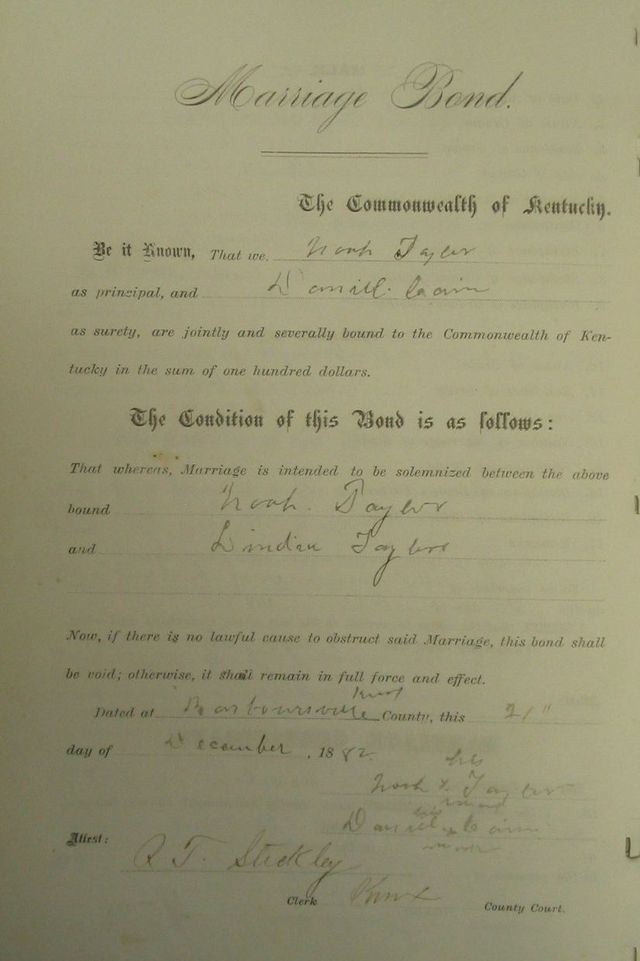 Marriage Bond.
The Commonwealth of Kentucky.
Be it Known, That we, Noah Taylor
as principal, and Daniel Cain
as surety, are jointly and severally bound to the Commonwealth of Ken-
tucky in the sum of one hundred dollars.
The Condition of this Bond is as follows:
That whereas, Marriage is intended to be solemnized between the above
bound Noah. Taylor
and Taylor
Now, if there is no lawful cause to obstruct said Marriage, this bond shall
be void; otherwise, it shall remain in full force and effect.
Knox
Dated at Barboursville County, this 21"
day of December, 1882
his
Noah x Taylor
mark
Daniel x Cain
mark
Attest:
Stickley
Clerk Knox County Court.